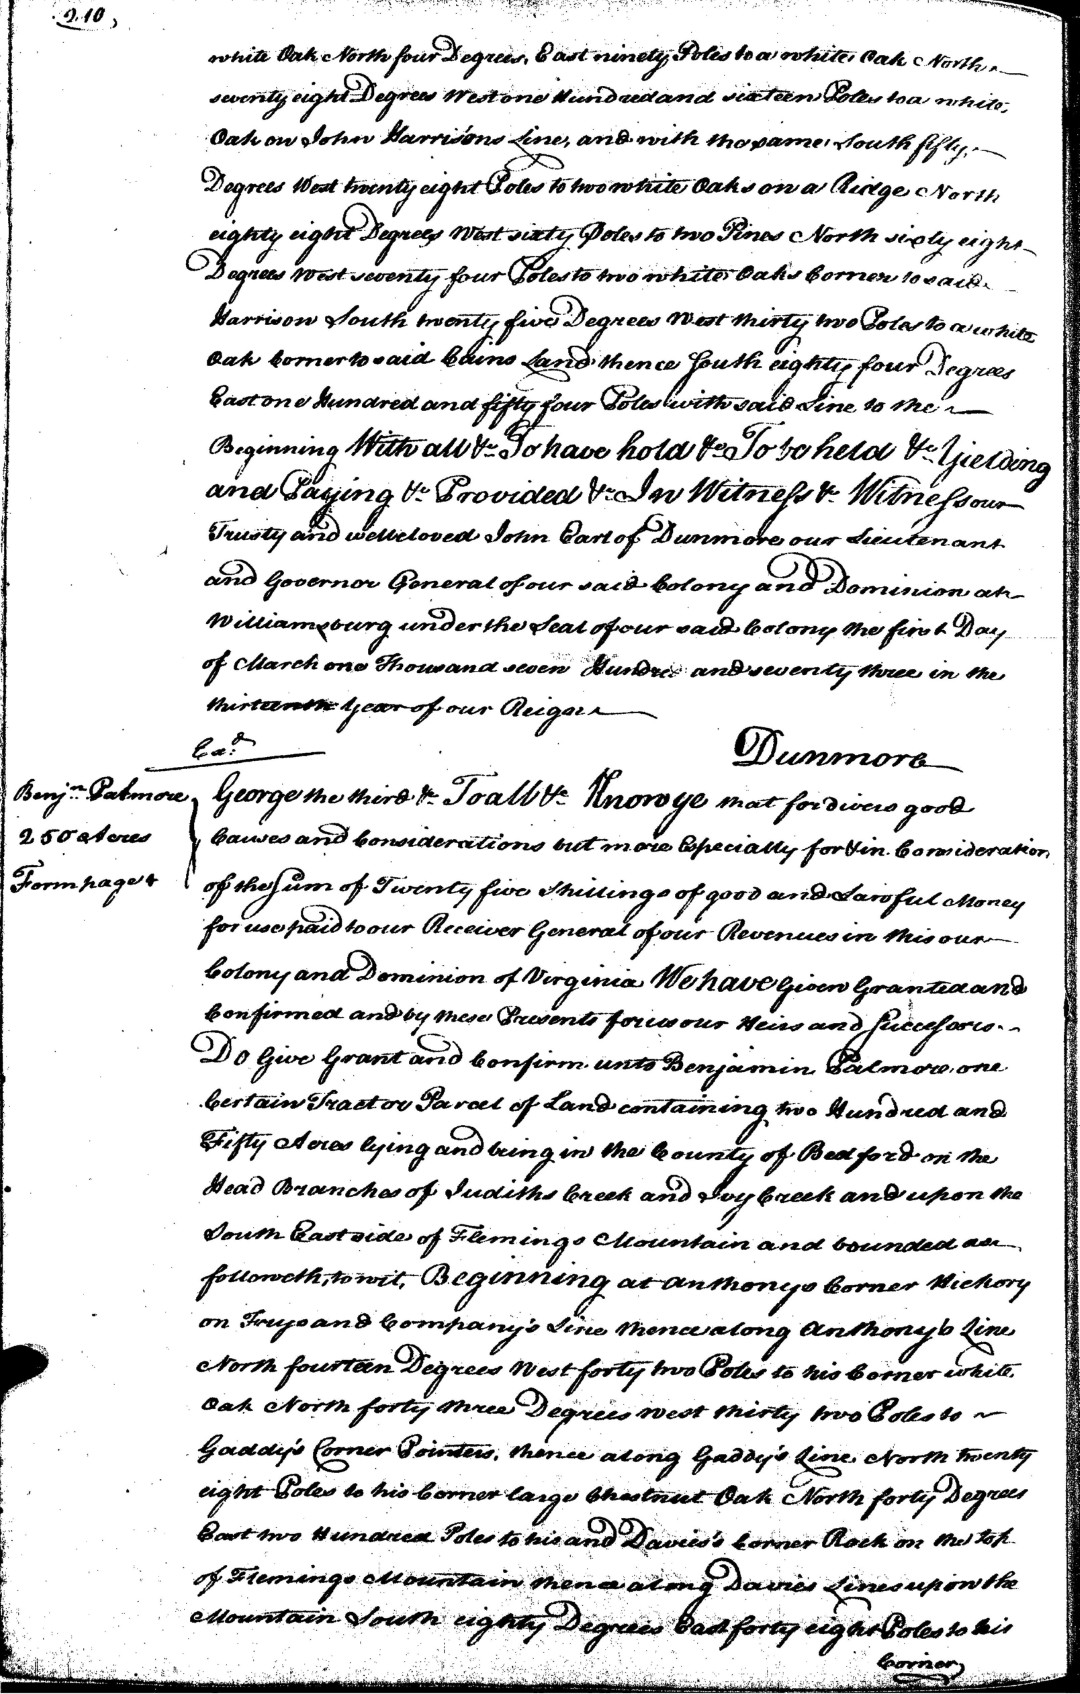 210,
white Oak North four Degrees, East ninety Poles to a white Oak North
seventy eight Degrees West one Hundred and sixteen Poles to a white
Oak on John Harrisons Line, and with the same South fifty
Degrees West twenty eight Poles to two white Oaks on a Ridge North
eighty eight Degrees West sixty Poles to two Pines North sixty eight
Degrees West seventy four Poles to two white Oaks Corner to said
Harrison South twenty five Degrees West thirty two Poles to a white
Oak Corner to said Cains Land thence South eighty four Degrees
East one Hundred and fifty four Poles with said Line to the
Beginning With all &c To have hold &c To be held &c Yielding
and Paying &c Provided &c In Witness &c Witness our
Trusty and welbeloved John Earl of Dunmore our Lieutenant
and Governor General of our said Colony and Dominion at
Williamsburg under the Seal of our said Colony the first Day
of March one Thousand seven Hundre and seventy three in the
thirteenth Year of our Reign
Exd.
Dunmore
Benjn. Palmore
250 Acres
Form page 4
George the third &c To all &c Know ye that for divers good
Causes and Considerations but more Especially for & in Consideration
of the Sum of Twenty five Shillings of good and Lawful Money
for use paid to our Receiver General of our Revenues in this our
Colony and Dominion of Virginia We have Given Granted and
Confirmed and by these Presents for us our Heirs and Successors
Do Give Grant and Confirm unto Benjamin Palmore one
Certain Tract or Parcel of Land containing two Hundred and
Fifty Acres lying and being in the County of Bedford on the
Head Branches of Judiths Creek and Ivy Creek and upon the
South East side of Flemings Mountain and bounded as
followeth, to wit, Beginning at Anthonys Corner Hickory
on Frys and Company's Line thence along Anthony's Line
North fourteen Degrees West forty two Poles to his Corner white
Oak North forty three Degrees West thirty two Poles to
Gaddy's Corner Pointers, thence along Gaddy's Line North twenty
eight Poles to his Corner large Chestnut Oak North forty Degrees
East two Hundred Poles to his and Davies's Corner Rock on the top
of Flemings Mountain thence along Davies Lines upon the
Mountain South eighty Degrees East forty eight Poles to his
Corner